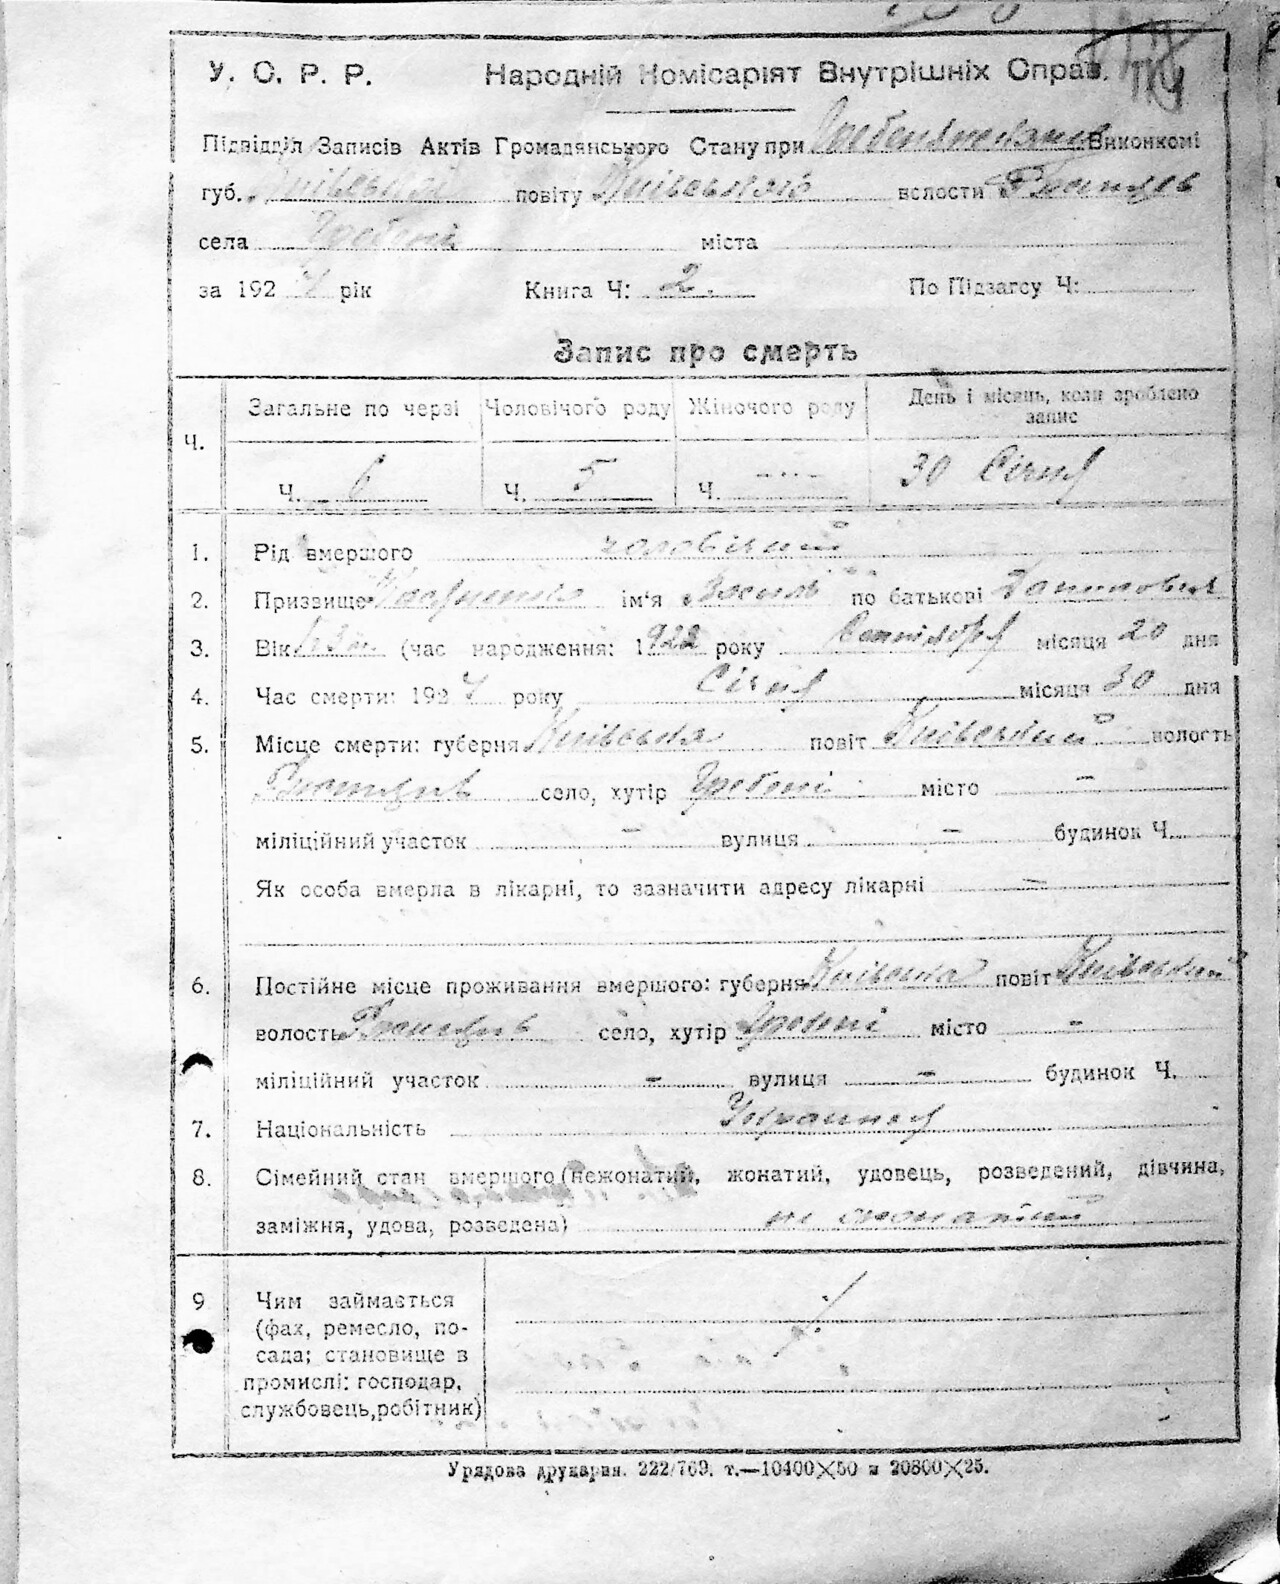 У. С. Р. Р. Народній Комісаріят Внутрішніх Справ.
114
Підвідділ Записів Актів Громадянського Стану при Виконкомі
губ. Київської повіту Київського волости
села Гребені міста
за 192 рік Книга Ч: 2. По Підзагсу Ч:
Запис про смерть
Ч. Загальне по черзі Чоловічого роду Жіночого роду День і місяць, коли зроблено запис
Ч. 6 Ч. 5 Ч. — 30 Січня
1. Рід вмершого чоловічий
2. Призвище ім'я Василь по батькові
3. Вік (час народження: 1922 року місяця 20 дня
4. Час смерти: 192 року Січня місяця 30 дня
5. Місце смерти: губерня Київська повіт Київський волость
село, хутір Гребені місто —
міліційний участок — вулиця — будинок Ч.
Як особа вмерла в лікарні, то зазначити адресу лікарні —
6. Постійне місце проживання вмершого: губерня Київська повіт Київський
волость село, хутір Гребені місто —
міліційний участок — вулиця — будинок Ч.
7. Національність
8. Сімейний стан вмершого (нежонатий, жонатий, удовець, розведений, дівчина,
заміжня, удова, розведена) не жонатий
9 Чим займається
(фах, ремесло, по-
сада; становище в
промислі: господар,
службовець, робітник)
Урядова друкарня. 222/769. т.—10400×50 и 20800×25.